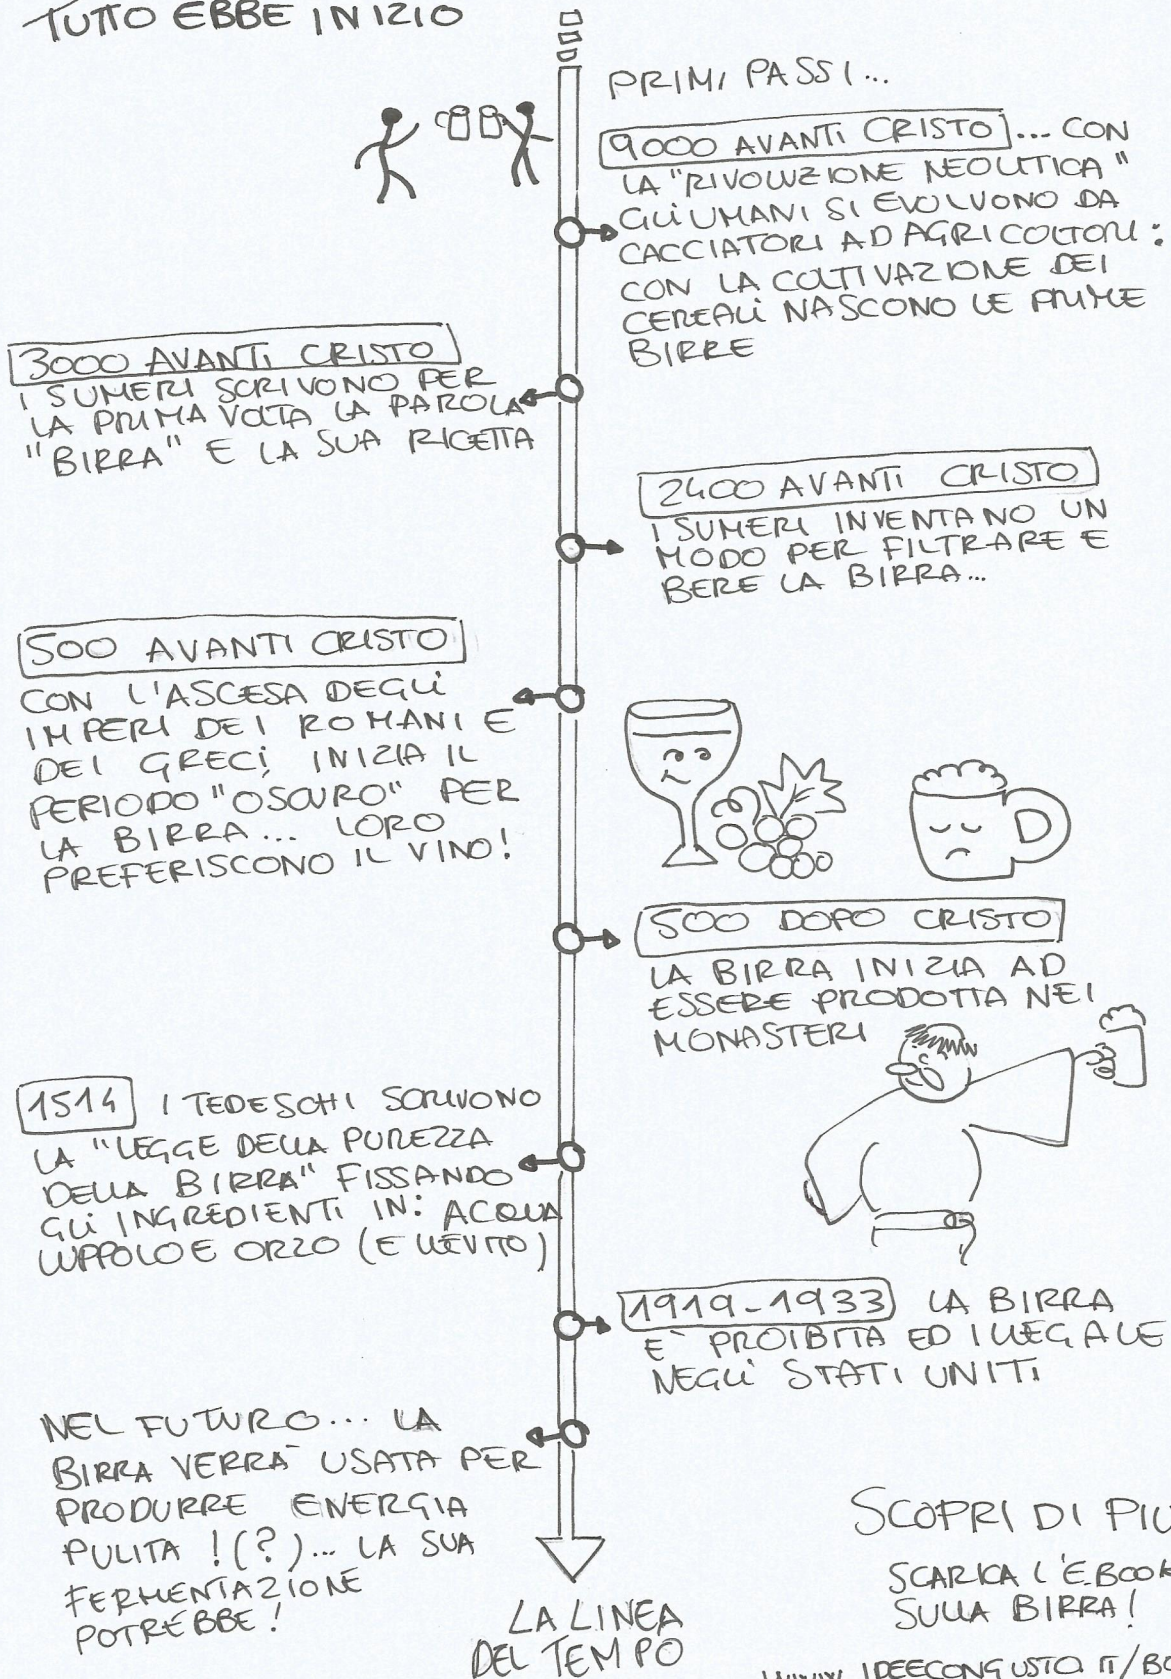 TUTTO EBBE INIZIO
PRIMI PASSI...
9000 AVANTI CRISTO ... CON
LA "RIVOLUZIONE NEOLITICA"
GLI UMANI SI EVOLVONO DA
CACCIATORI AD AGRICOLTORI:
CON LA COLTIVAZIONE DEI
CEREALI NASCONO LE PRIME
BIRRE
3000 AVANTI CRISTO
I SUMERI SCRIVONO PER
LA PRIMA VOLTA LA PAROLA
"BIRRA" E LA SUA RICETTA
2400 AVANTI CRISTO
I SUMERI INVENTANO UN
MODO PER FILTRARE E
BERE LA BIRRA...
500 AVANTI CRISTO
CON L'ASCESA DEGLI
IMPERI DEI ROMANI E
DEI GRECI, INIZIA IL
PERIODO "OSCURO" PER
LA BIRRA... LORO
PREFERISCONO IL VINO!
500 DOPO CRISTO
LA BIRRA INIZIA AD
ESSERE PRODOTTA NEI
MONASTERI
1514 I TEDESCHI SCRIVONO
LA "LEGGE DELLA PUREZZA
DELLA BIRRA" FISSANDO
GLI INGREDIENTI IN: ACQUA
LUPPOLO E ORZO (E LIEVITO)
1919-1933 LA BIRRA
E' PROIBITA ED ILLEGALE
NEGLI STATI UNITI
NEL FUTURO... LA
BIRRA VERRÀ USATA PER
PRODURRE ENERGIA
PULITA !(?)... LA SUA
FERMENTAZIONE
POTREBBE!
LA LINEA
DEL TEMPO
SCOPRI DI PIU
SCARICA L'E.BOOK
SULLA BIRRA!
www.IDEECONGUSTO.IT/BO